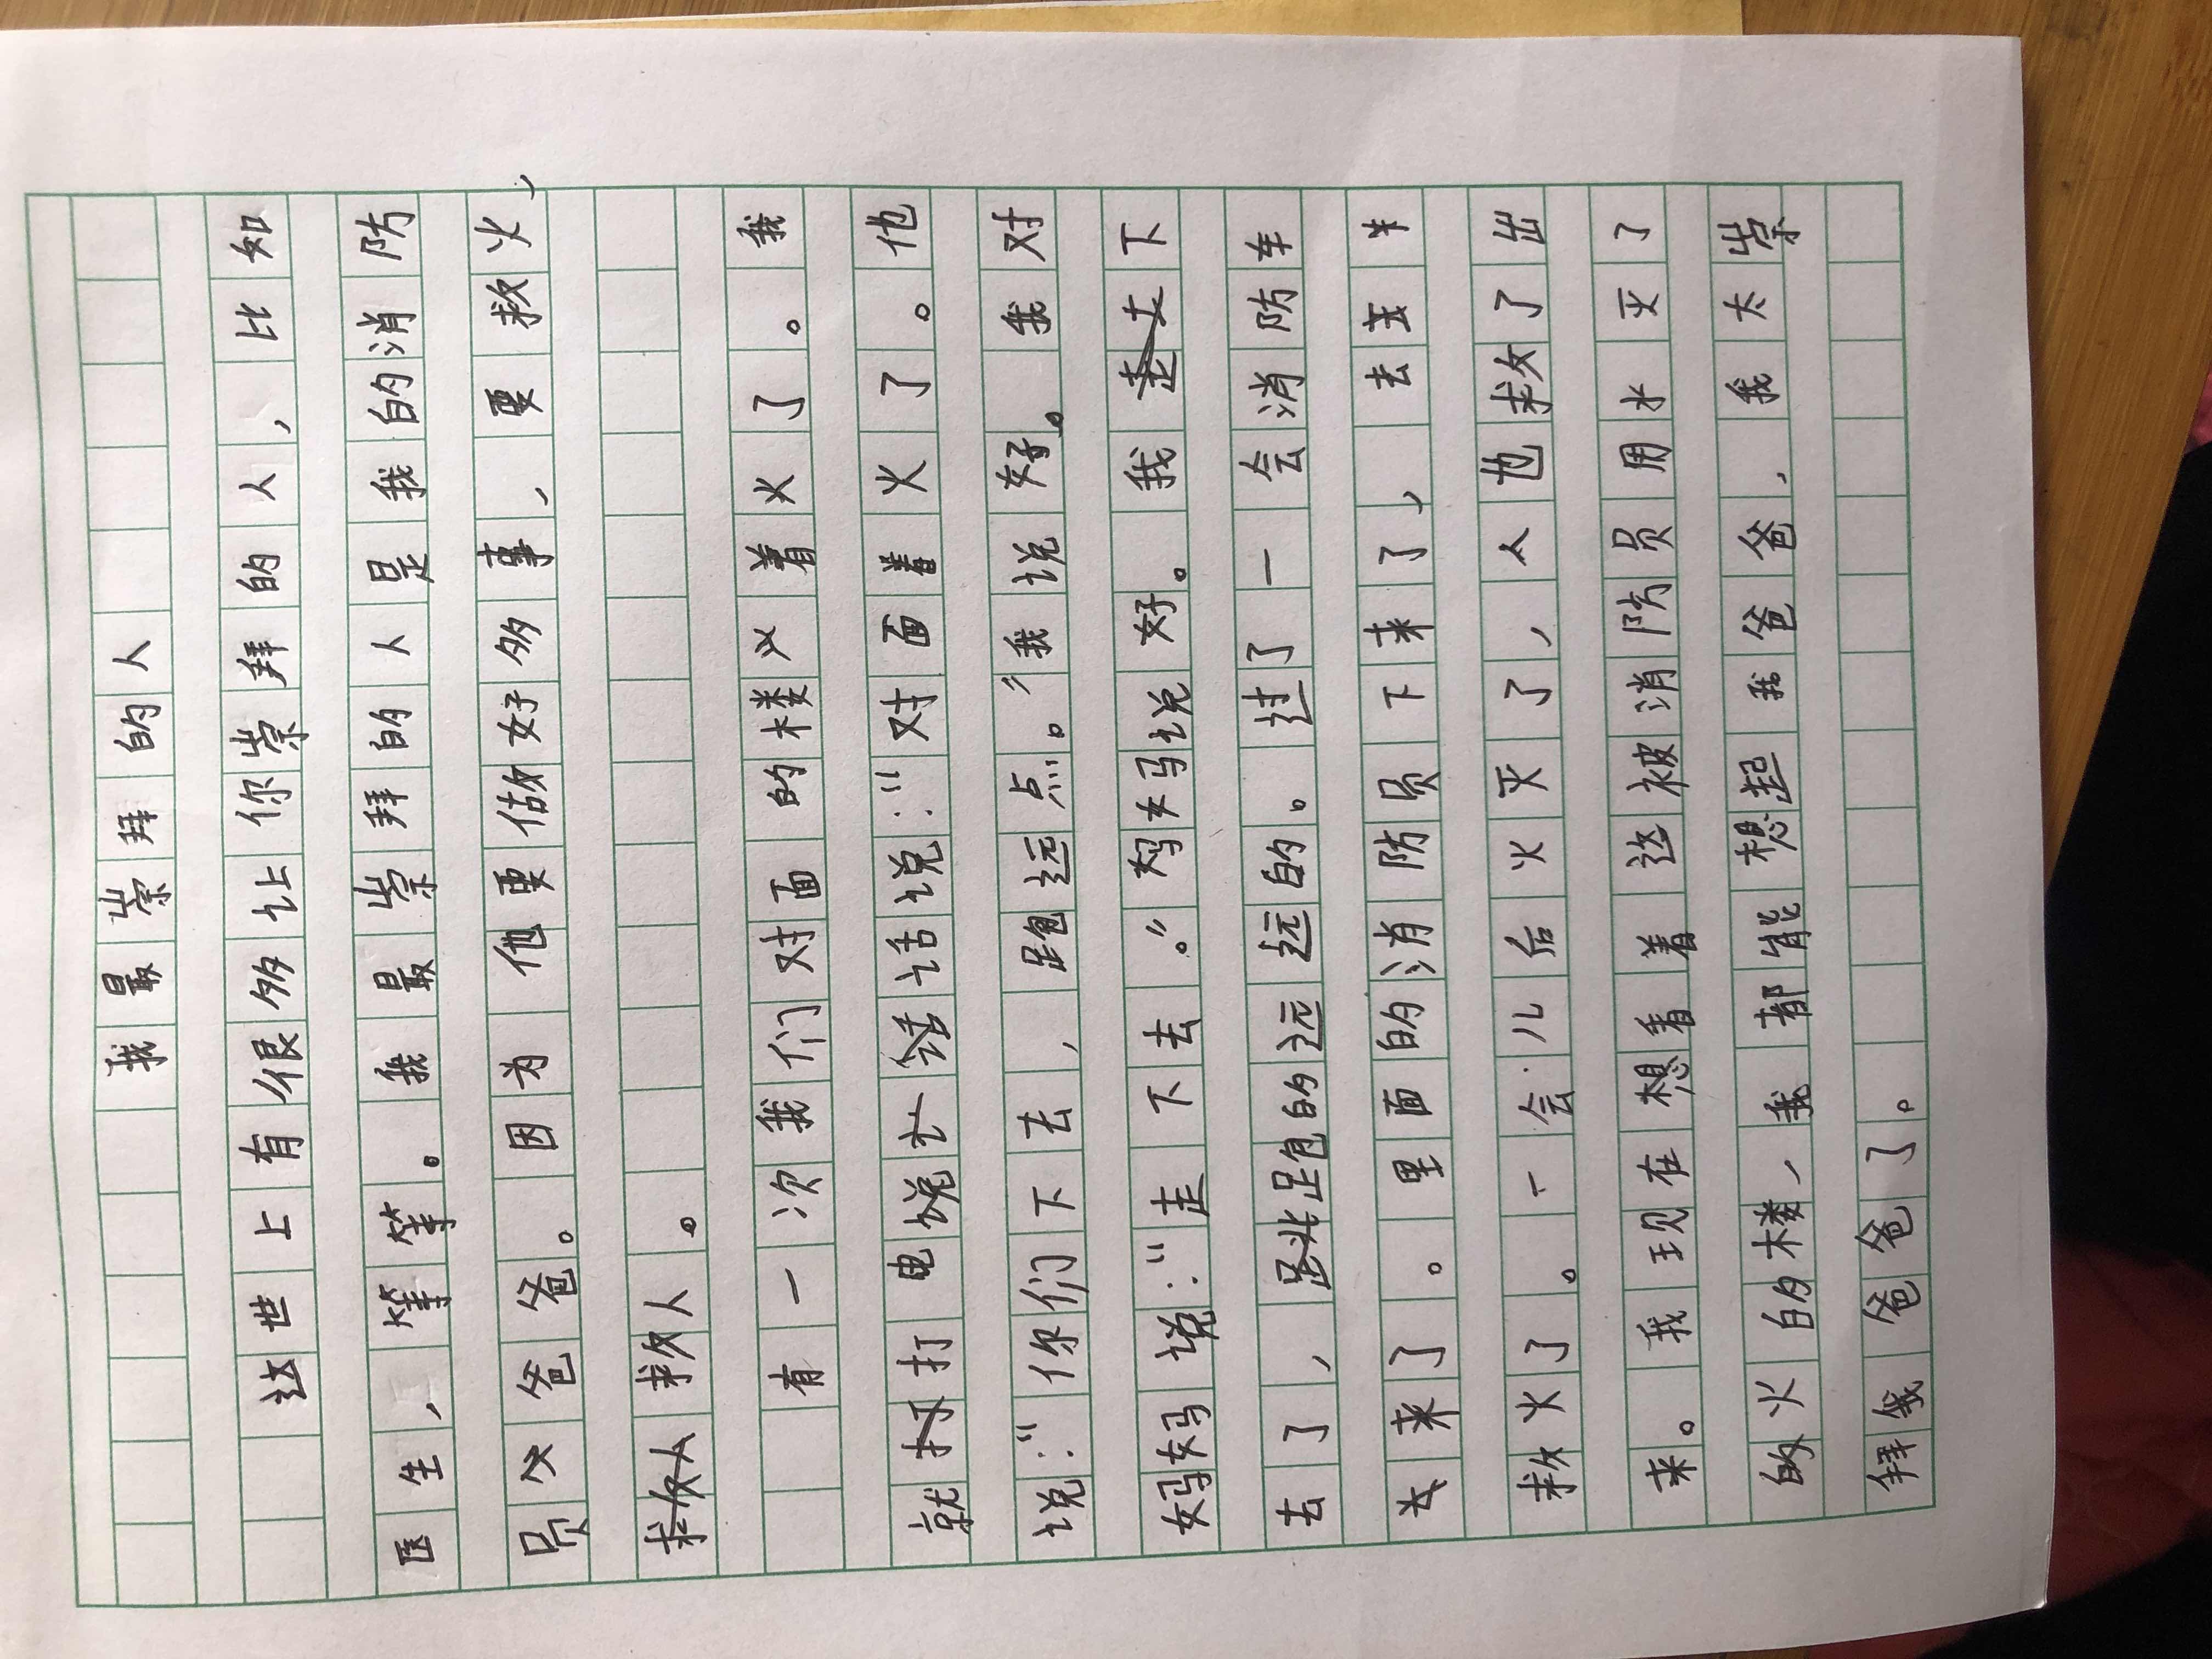 我最崇拜的人
这世上有很多让你崇拜的人，比如
医生，等等。我最崇拜的人是我的消防
员父爸爸。因为他要做好多事，要救火，
救人。
有一次我们对面的楼义着火了。我
就打电说忙结话说：“对面着火了。他
说：“你们下去，跑远点。”我说好。我对
妈妈说：“走下去。”妈妈说好。我下
去了，跑的远远的。过了一会消防车
来了。里面的消防员下来了，去
救火了。一会儿后火灭了，人也救了出
来。我现在想看着这被消防员用水灭了
的火的楼，我都能想起我爸爸，我太崇
拜我爸爸了。